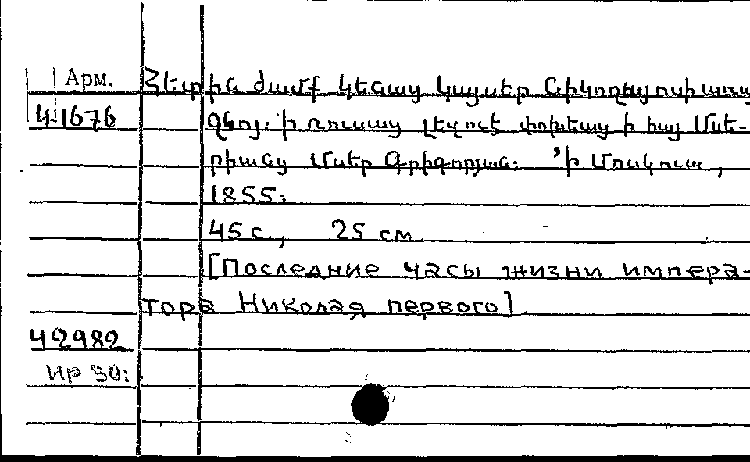 Арм. Հետին ժամք կենաց կայսեր Նիկողայոսի առա
4-1676 ջնոյ. ի ռուսաց լեզուէ փոխեաց ի հայ Մսե-
րիանց Մսեր Գրիգորյան: ’Ի Մոսկուա,
1855:
45 с., 25 см
[Последние часы жизни импера-
тора Николая первого]
42982